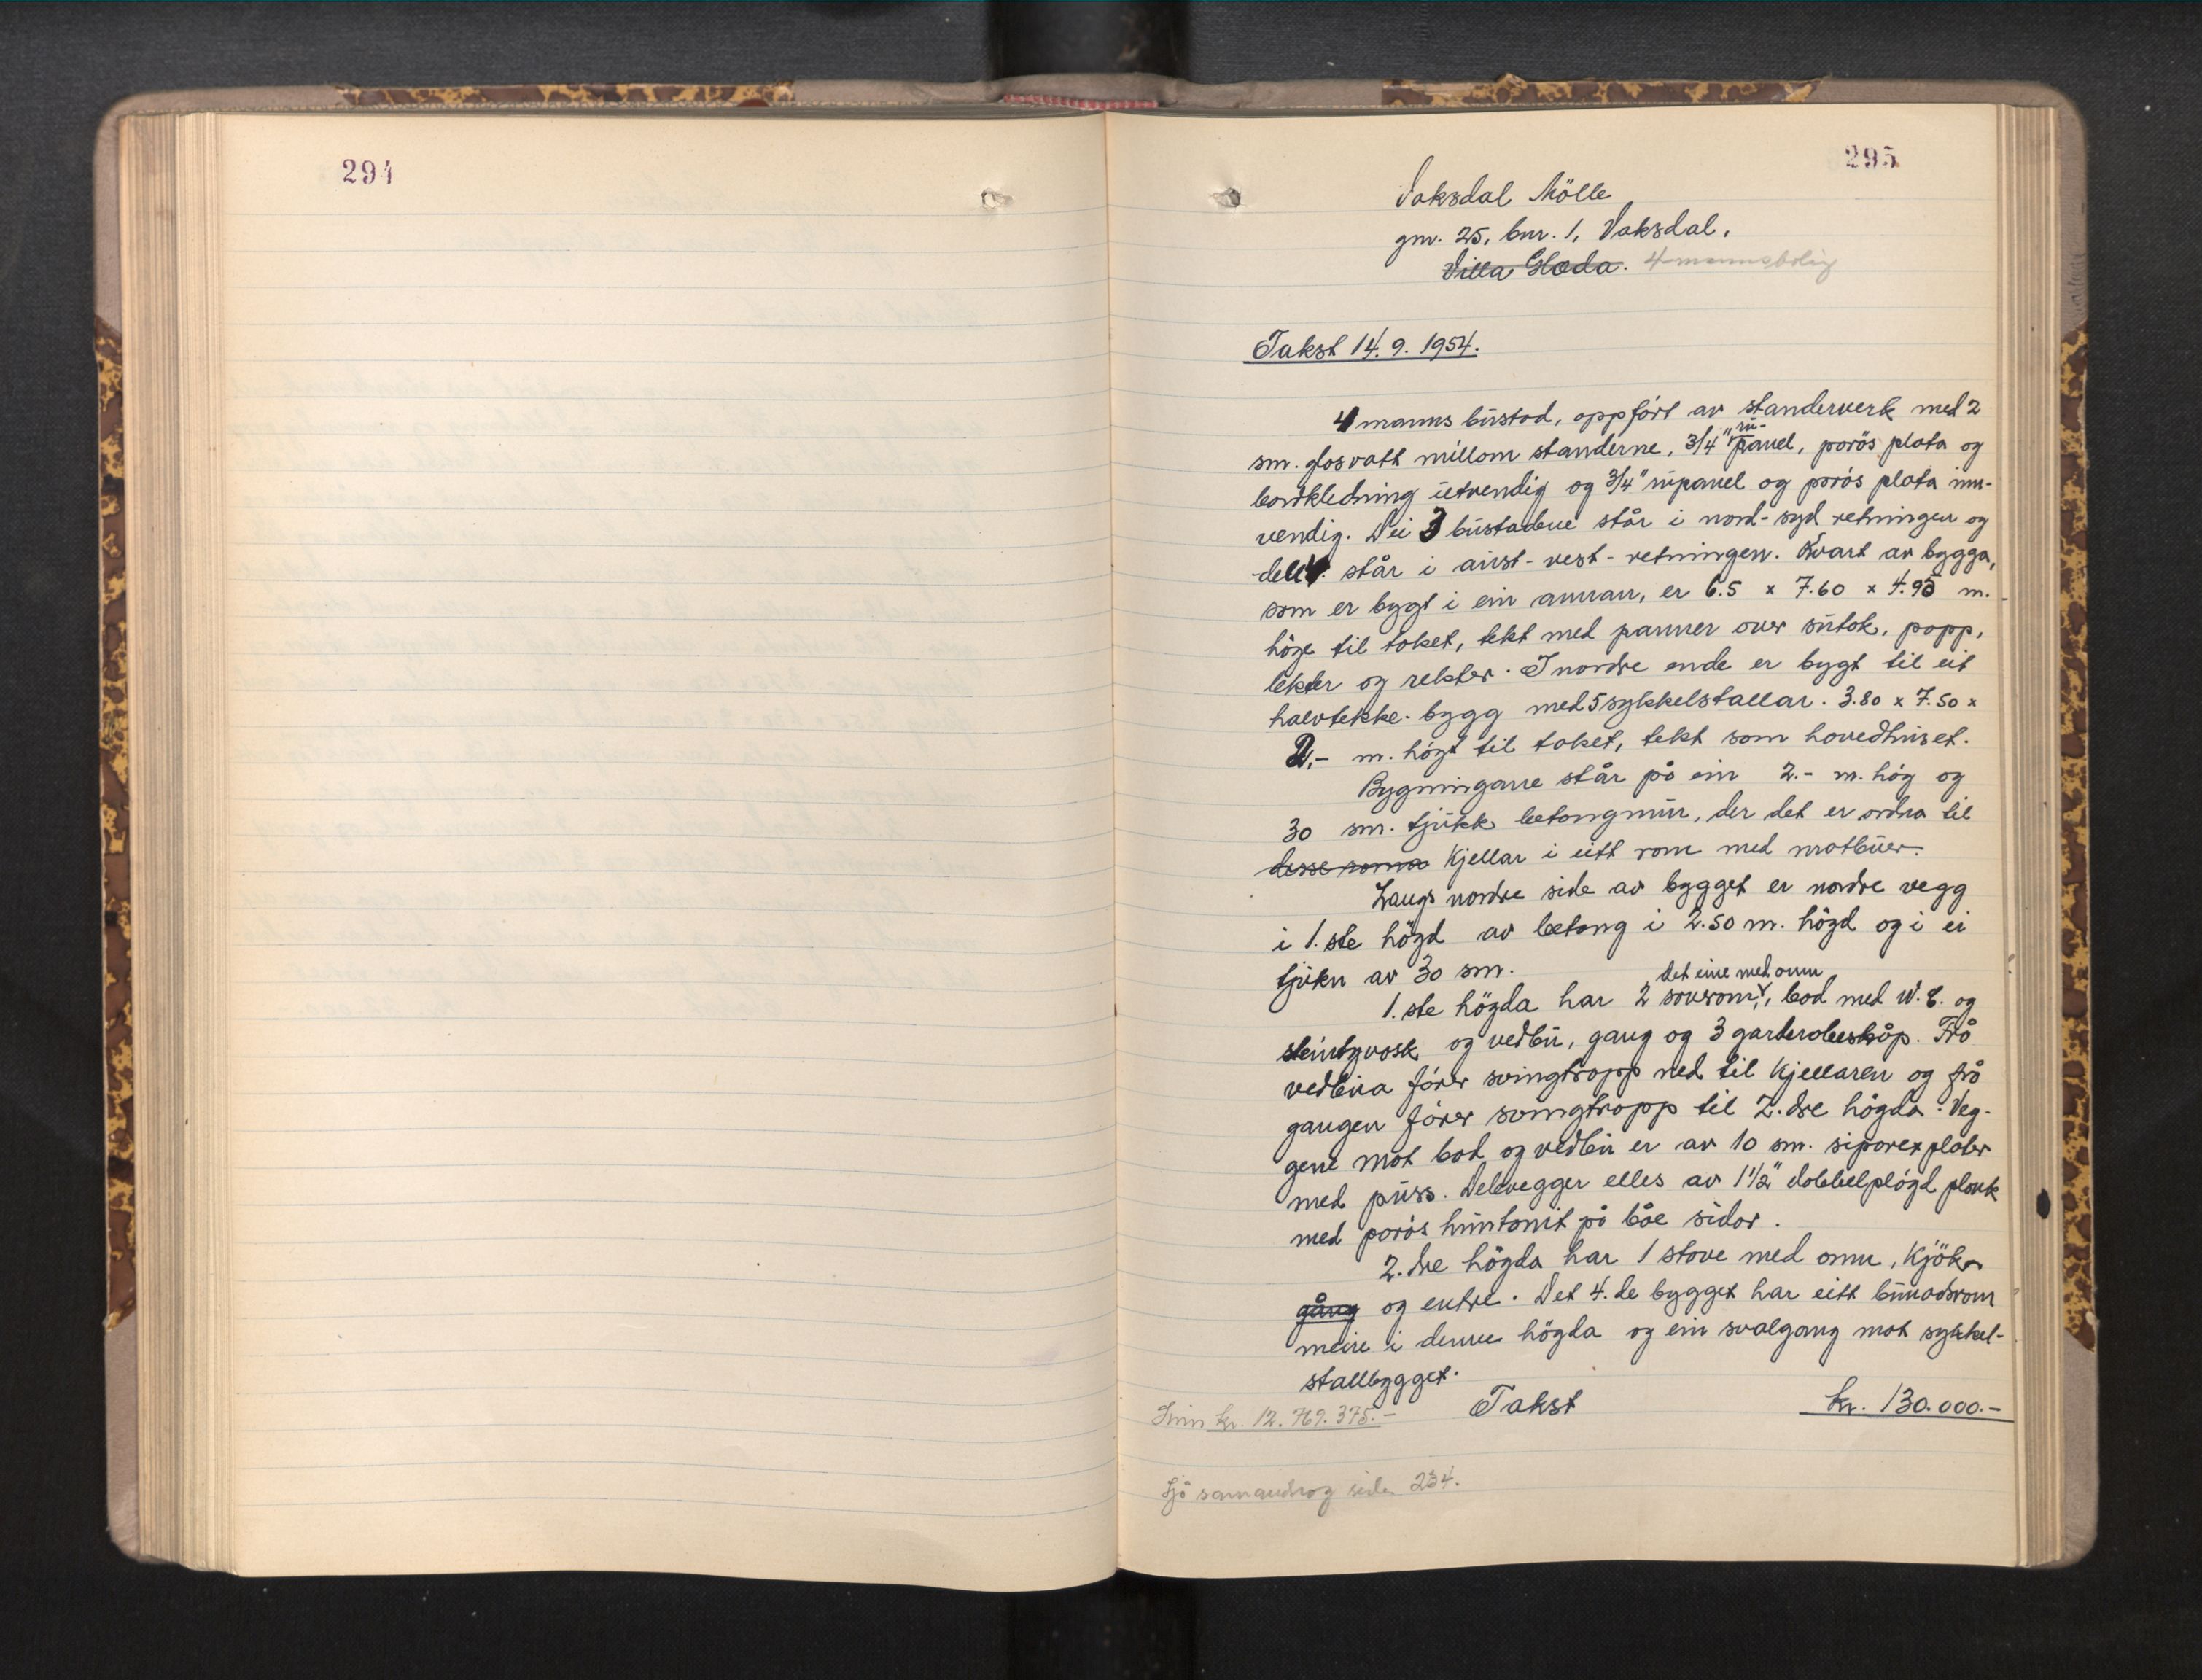 294
295
Vaksdal Mölle
gnr. 25, bnr. 1, Vaksdal.
Villa Glæda. 4-mannsbolig
Takst 14.9.1954.
4 manns bustad, oppfört av standerverk med 2
sm. glasvatt millom standerne, 3/4" rupanel, porös plata og
bordkledning utvendig og 3/4" rupanel og porös plata inn-
vendig. Dei 3 bustadene står i nord-syd retningen og
den 4. står i aust-vest-retningen. Kvart av bygga,
som er bygt i ein annan, er 6.5 x 7.60 x 4.95 m.
höge til taket, tekt med panner over sutak, papp,
lekter og rekter. I nordre ende er bygt til eit
halvtekke-bygg med 5 sykkelstallar. 3.80 x 7.50 x
2,- m. högt til taket, tekt som hovedhuset.
Bygningane står på ein 2.- m. hög og
30 sm. tjukk betongmur, der det er ordna til
desse roma Kjellar i eitt rom med matbuer.
Langs nordre side av bygget er nordre vegg
i 1.ste högd av betong i 2.50 m. högd og i ei
tjukn av 30 sm.
det eine med omn
1.ste högda har 2 soverom, bod med W.C. og
steintyvask og vedbu, gang og 3 garderobeskåp. Frå
vedbua förer svingtrapp ned til Kjellaren og frå
gangen förer svingtrapp til 2.dre högda. Veg-
gene mot bod og vedbu er av 10 sm. siporexplater
med puss. Delevegger elles av 1 1/2" dobbelplögd plank
med porös huntonit på båe sidor.
2.dre högda har 1 stove med omn, Kjök
gång og entre. Det 4.de bygget har eitt bunadsrom
meire i denne högda og ein svalgang mot sykkel-
stallbygget.
Takst kr. 130.000.-
Sum kr. 12.769.375.-
Sjå samandrag side 234.